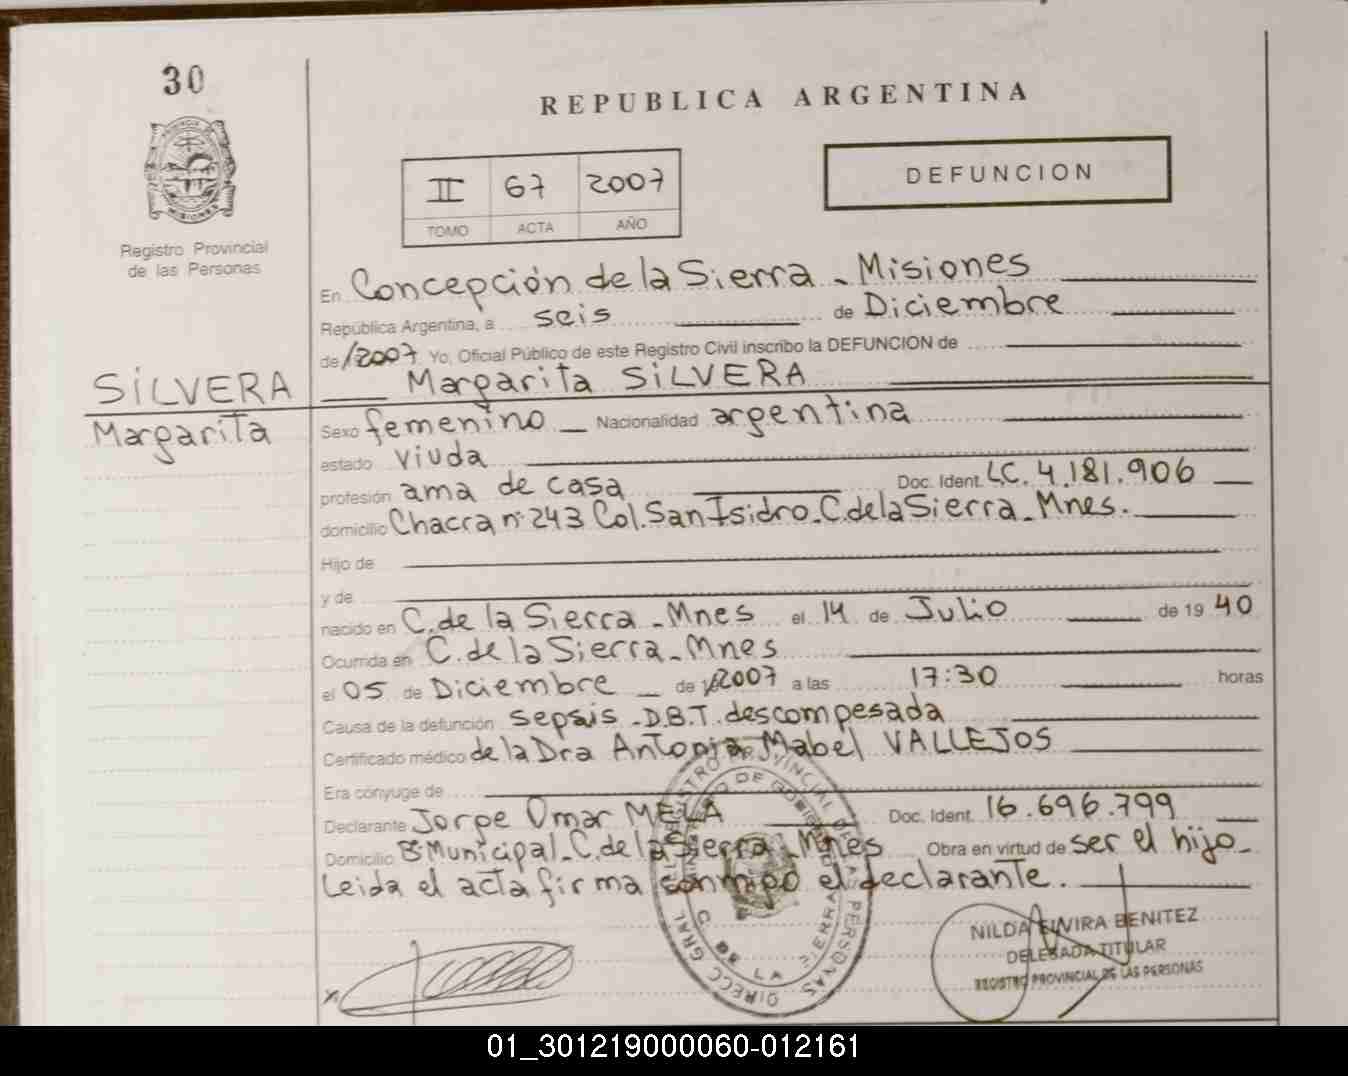 30
REPUBLICA ARGENTINA
II 67 2007
TOMO ACTA AÑO
DEFUNCION
PROVINCIA MISIONES
Registro Provincial
de las Personas
En Concepción de la Sierra - Misiones
República Argentina, a seis de Diciembre
de /2007 Yo, Oficial Público de este Registro Civil inscribo la DEFUNCION de
SILVERA
Margarita
Margarita SILVERA
Sexo femenino Nacionalidad argentina
estado viuda
profesión ama de casa Doc. Ident. LC. 4.181.906
domicilio Chacra nº 243 Col. San Isidro - C. de la Sierra - Mnes.
Hijo de
y de
nacido en C. de la Sierra - Mnes el 14 de Julio de 19 40
Ocurrida en C. de la Sierra - Mnes
el 05 de Diciembre de 2007 a las 17:30 horas
Causa de la defunción sepsis - D.B.T. descompesada
Certificado médico de la Dra Antonia Mabel VALLEJOS
Era cónyuge de
Declarante Jorge Omar MELA Doc. Ident. 16.696.799
Domicilio Bº Municipal - C. de la Sierra - Mnes Obra en virtud de ser el hijo -
Leida el acta firma conmigo el declarante.
NILDA ELVIRA BENITEZ
DELEGADA TITULAR
REGISTRO PROVINCIAL DE LAS PERSONAS
DIRECC. GRAL. REGISTRO PROVINCIAL DE LAS PERSONAS
01_301219000060-012161